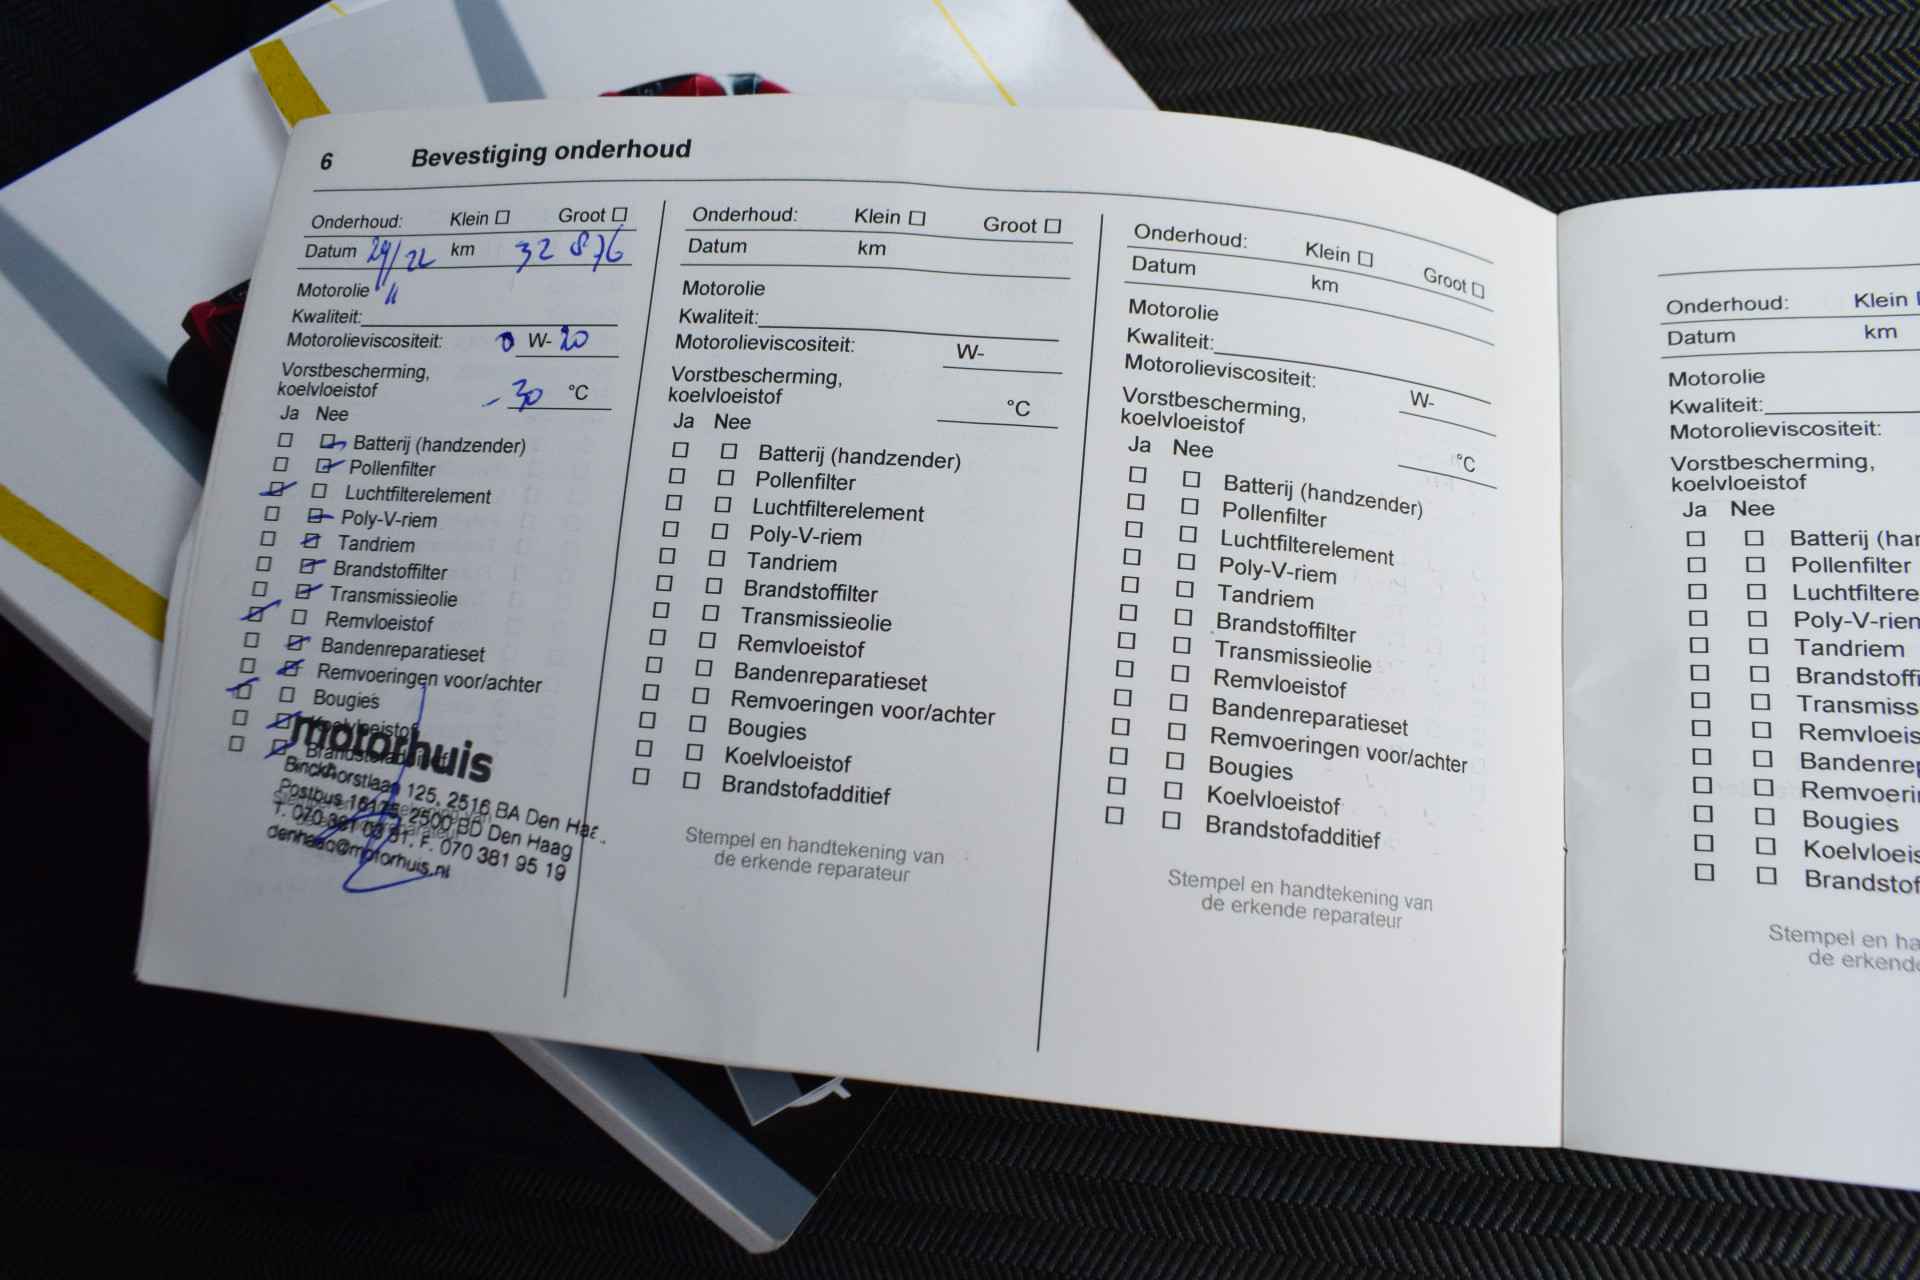 6 Bevestiging onderhoud
Onderhoud: Klein Groot
Datum 29/11 22 km 32 876
Motorolie
Kwaliteit:
Motorolieviscositeit: 0 W- 20
Vorstbescherming,
koelvloeistof - 30 °C
Ja Nee
Batterij (handzender)
Pollenfilter
Luchtfilterelement
Poly-V-riem
Tandriem
Brandstoffilter
Transmissieolie
Remvloeistof
Bandenreparatieset
Remvoeringen voor/achter
Bougies
Koelvloeistof
Brandstofadditief
motorhuis
Binckhorstlaan 125, 2516 BA Den Haag
Postbus 16175, 2500 BD Den Haag
T. 070 381 F. 070 381 95 19
denhaag@motorhuis.nl
Onderhoud: Klein Groot
Datum km
Motorolie
Kwaliteit:
Motorolieviscositeit: W-
Vorstbescherming,
koelvloeistof °C
Ja Nee
Batterij (handzender)
Pollenfilter
Luchtfilterelement
Poly-V-riem
Tandriem
Brandstoffilter
Transmissieolie
Remvloeistof
Bandenreparatieset
Remvoeringen voor/achter
Bougies
Koelvloeistof
Brandstofadditief
Stempel en handtekening van
de erkende reparateur
Onderhoud: Klein Groot
Datum km
Motorolie
Kwaliteit:
Motorolieviscositeit: W-
Vorstbescherming,
koelvloeistof °C
Ja Nee
Batterij (handzender)
Pollenfilter
Luchtfilterelement
Poly-V-riem
Tandriem
Brandstoffilter
Transmissieolie
Remvloeistof
Bandenreparatieset
Remvoeringen voor/achter
Bougies
Koelvloeistof
Brandstofadditief
Stempel en handtekening van
de erkende reparateur
Onderhoud: Klein
Datum km
Motorolie
Kwaliteit:
Motorolieviscositeit:
Vorstbescherming,
koelvloeistof
Ja Nee
Batterij (han
Pollenfilter
Luchtfiltere
Poly-V-rien
Tandriem
Brandstoffi
Transmiss
Remvloeis
Bandenrep
Remvoerin
Bougies
Koelvloeis
Brandstof
Stempel en ha
de erkende